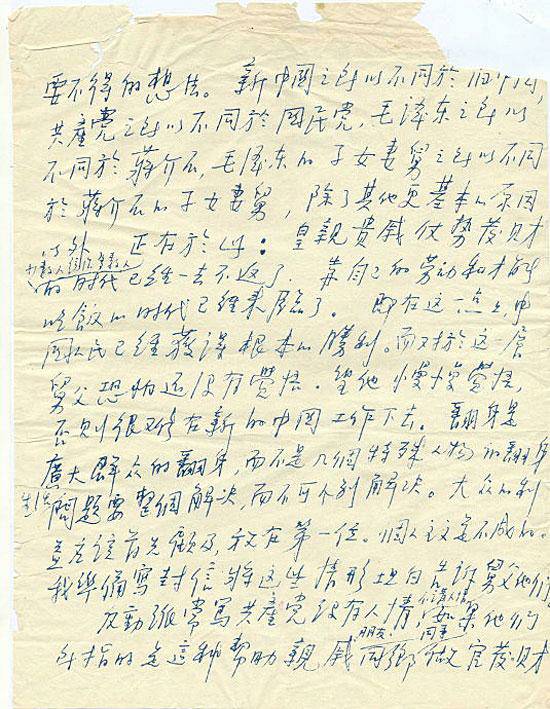 要不得的想法。新中國之所以不同於旧中國，
共產党之所以不同於國民党，毛泽东之所以
不同於蔣介石，毛泽东的子女妻舅之所以不同
於蔣介石的子女妻舅，除了其他更基本的原因
以外，正在於此：皇親貴戚仗势發財
少數人統治多數人
的时代已經一去不返了。靠自己的劳动和才能
吃飯的时代已經來臨了。即在这一点上，中
國人民已經獲得根本的勝利。而对於这一層
舅父恐怕还没有覺悟。望他慢慢覺悟，
否则很难在新的中國工作下去。翻身是
廣大群众的翻身，而不是几個特殊人物的翻身
生活問題要整個解决，而不可个别解决。大众的利
益应該首先顧及，放在第一位。個人主义是不成的。
我準備寫封信將这些情形坦白告訴舅父他們
不講人情
反動派常罵共產党没有人情，如果他們
朋友 同事
所指的是這种幫助親戚同鄉做官發財